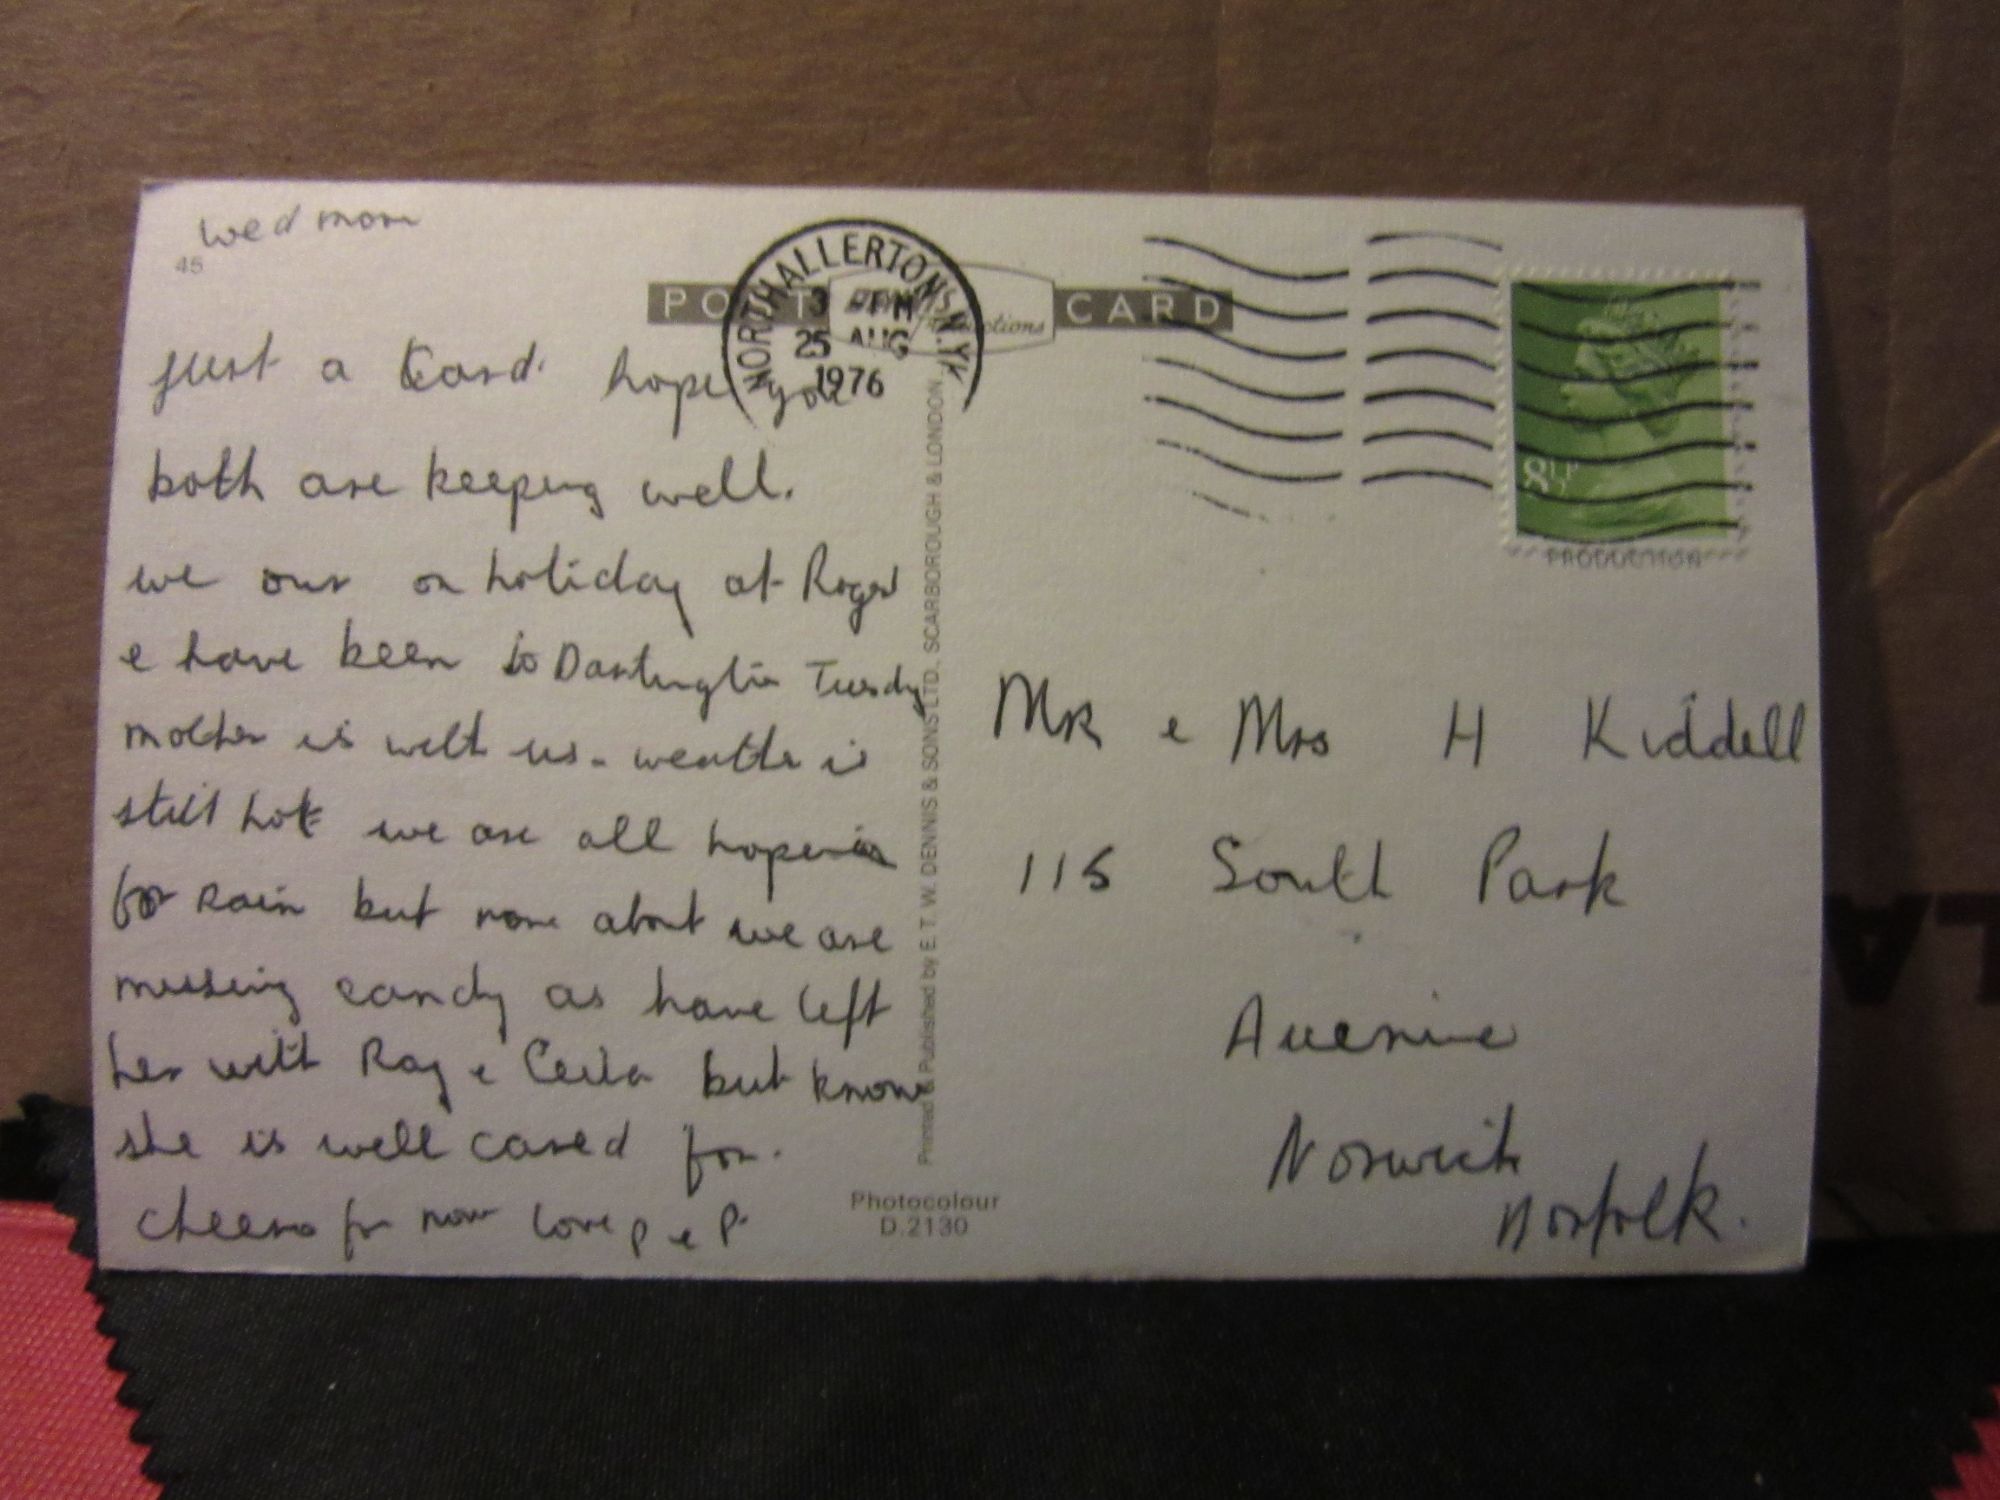 wed morn
45
POST CARD
NORTHALLERTON N. YK
3 PM
25 AUG
1976
8½P
PRODUCTION
Just a Card. hope you
both are keeping well.
we our on holiday at Roger
e have been to Darlington Tuesday
mother is with us - weather is
still hot we are all hopein
for Rain but none about we are
missing candy as have left
her with Ray e Ceila but know
she is well cared for.
cheers for now love P e P.
Printed & Published by E. T. W. DENNIS & SONS LTD. SCARBOROUGH & LONDON.
Photocolour
D.2130
MR e Mrs H Kiddell
115 South Park
Avenue
Norwich
Norfolk.